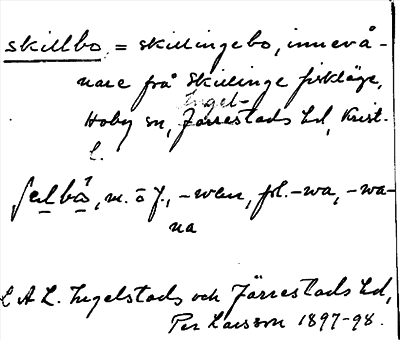 skillbo, = skillingebo, innevå-
nare frå Skillinge fiskläge,
Ingel-
Hoby sn, Järrestads hd, Krist.
L.
ʃɛlbå, m. o f., -wen, pl. -wa, -wa-
na
L A L. Ingelstads och Järrestads hd,
Per Larsson 1897-98.